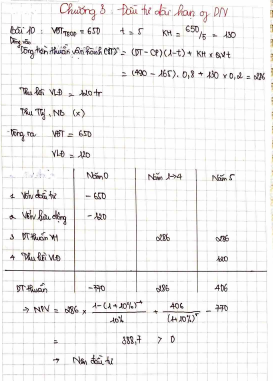 Chương 3 Đầu tư dài hạn of DN
Bài 10. VĐT TSCĐ = 650 t = 5 KH = 650/5 = 130
Dòng vào
Dòng tiền thuần vận hành = (DT - CP)(1-t) + KH x t
= (490 - 165). 0,8 + 130 x 0,2 = 286
Thu hồi VLĐ = 120 tr
Thu TL, NB (x)
Dòng ra VĐT = 650
VLĐ = 120
Năm 0 Năm 1→4 Năm 5
1 Vốn đầu tư - 650
2 Vốn lưu động - 120
3 DT thuần VH 286 286
4 Thu hồi VLĐ 120
DT thuần -770 286 406
⇒ NPV = 286 x 1-(1+10%)^-4 / 10% + 406 / (1+10%)^5 - 770
= 388,7 > 0
→ Nên đầu tư